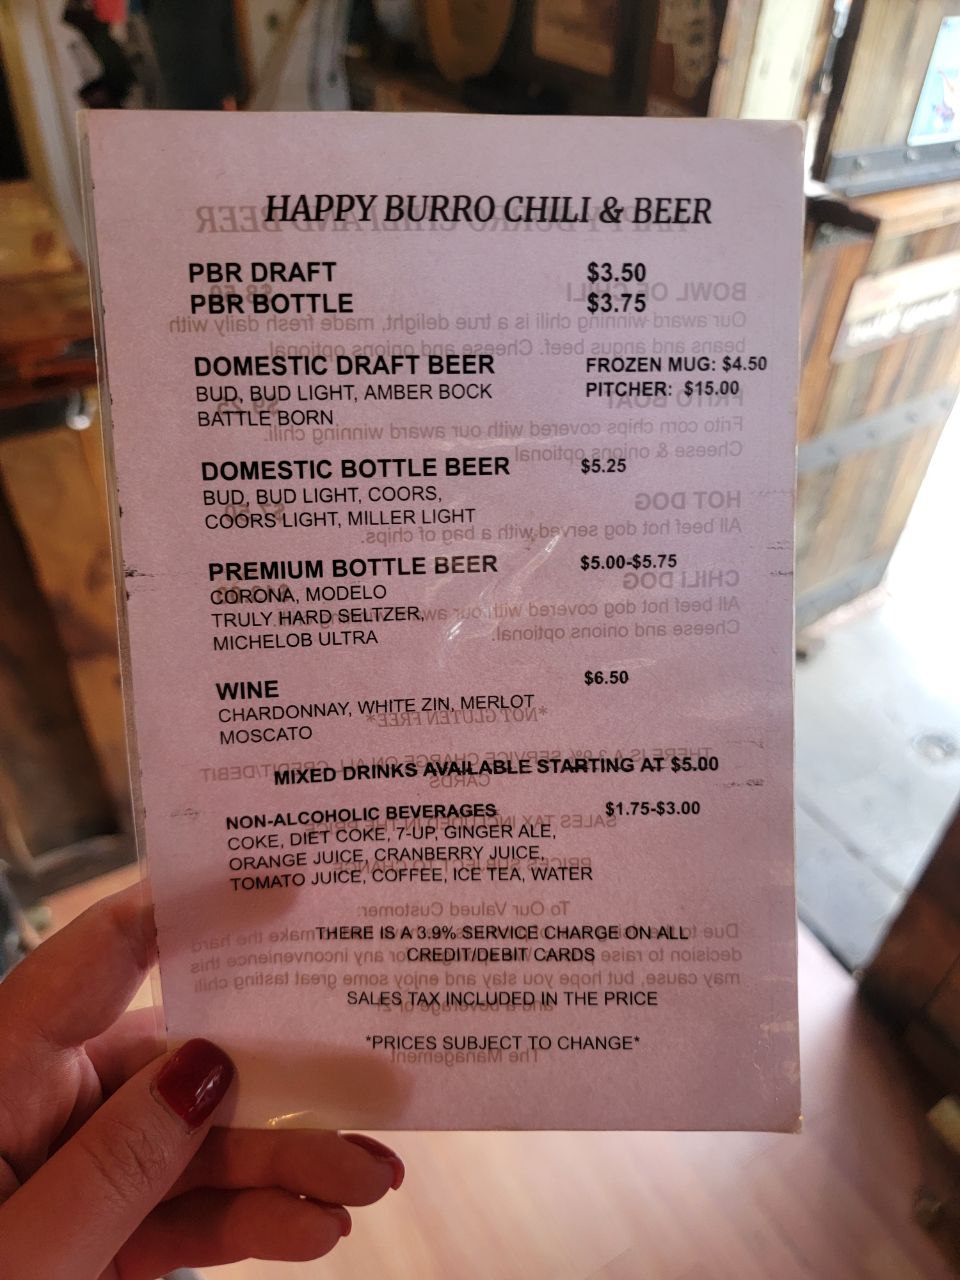 HAPPY BURRO CHILI & BEER
PBR DRAFT $3.50
PBR BOTTLE $3.75
DOMESTIC DRAFT BEER FROZEN MUG: $4.50
BUD, BUD LIGHT, AMBER BOCK PITCHER: $15.00
BATTLE BORN
DOMESTIC BOTTLE BEER $5.25
BUD, BUD LIGHT, COORS,
COORS LIGHT, MILLER LIGHT
PREMIUM BOTTLE BEER $5.00-$5.75
CORONA, MODELO
TRULY HARD SELTZER,
MICHELOB ULTRA
WINE $6.50
CHARDONNAY, WHITE ZIN, MERLOT
MOSCATO
MIXED DRINKS AVAILABLE STARTING AT $5.00
NON-ALCOHOLIC BEVERAGES $1.75-$3.00
COKE, DIET COKE, 7-UP, GINGER ALE,
ORANGE JUICE, CRANBERRY JUICE,
TOMATO JUICE, COFFEE, ICE TEA, WATER
THERE IS A 3.9% SERVICE CHARGE ON ALL
CREDIT/DEBIT CARDS
SALES TAX INCLUDED IN THE PRICE
*PRICES SUBJECT TO CHANGE*